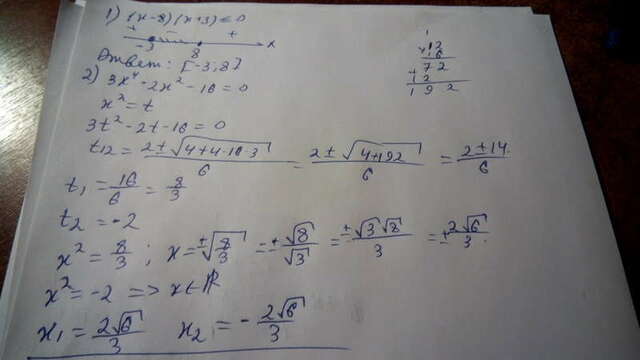 1) (x-8)(x+3)≤0
+ - +
-3 8 x
Ответ: [-3;8]
2) 3x⁴-2x²-16=0
x²=t
3t²-2t-16=0
t₁₂= (2±√(4+4·16·3))/6 = (2±√(4+192))/6 = (2±14)/6
t₁= 16/6 = 8/3
t₂=-2
x²= 8/3 ; x=±√(8/3) =±√8/√3 =±√3√8/3 =±2√6/3
x²=-2 => x∈ℝ
x₁= 2√6/3 x₂=- 2√6/3
1
×12
16
72
+12
192